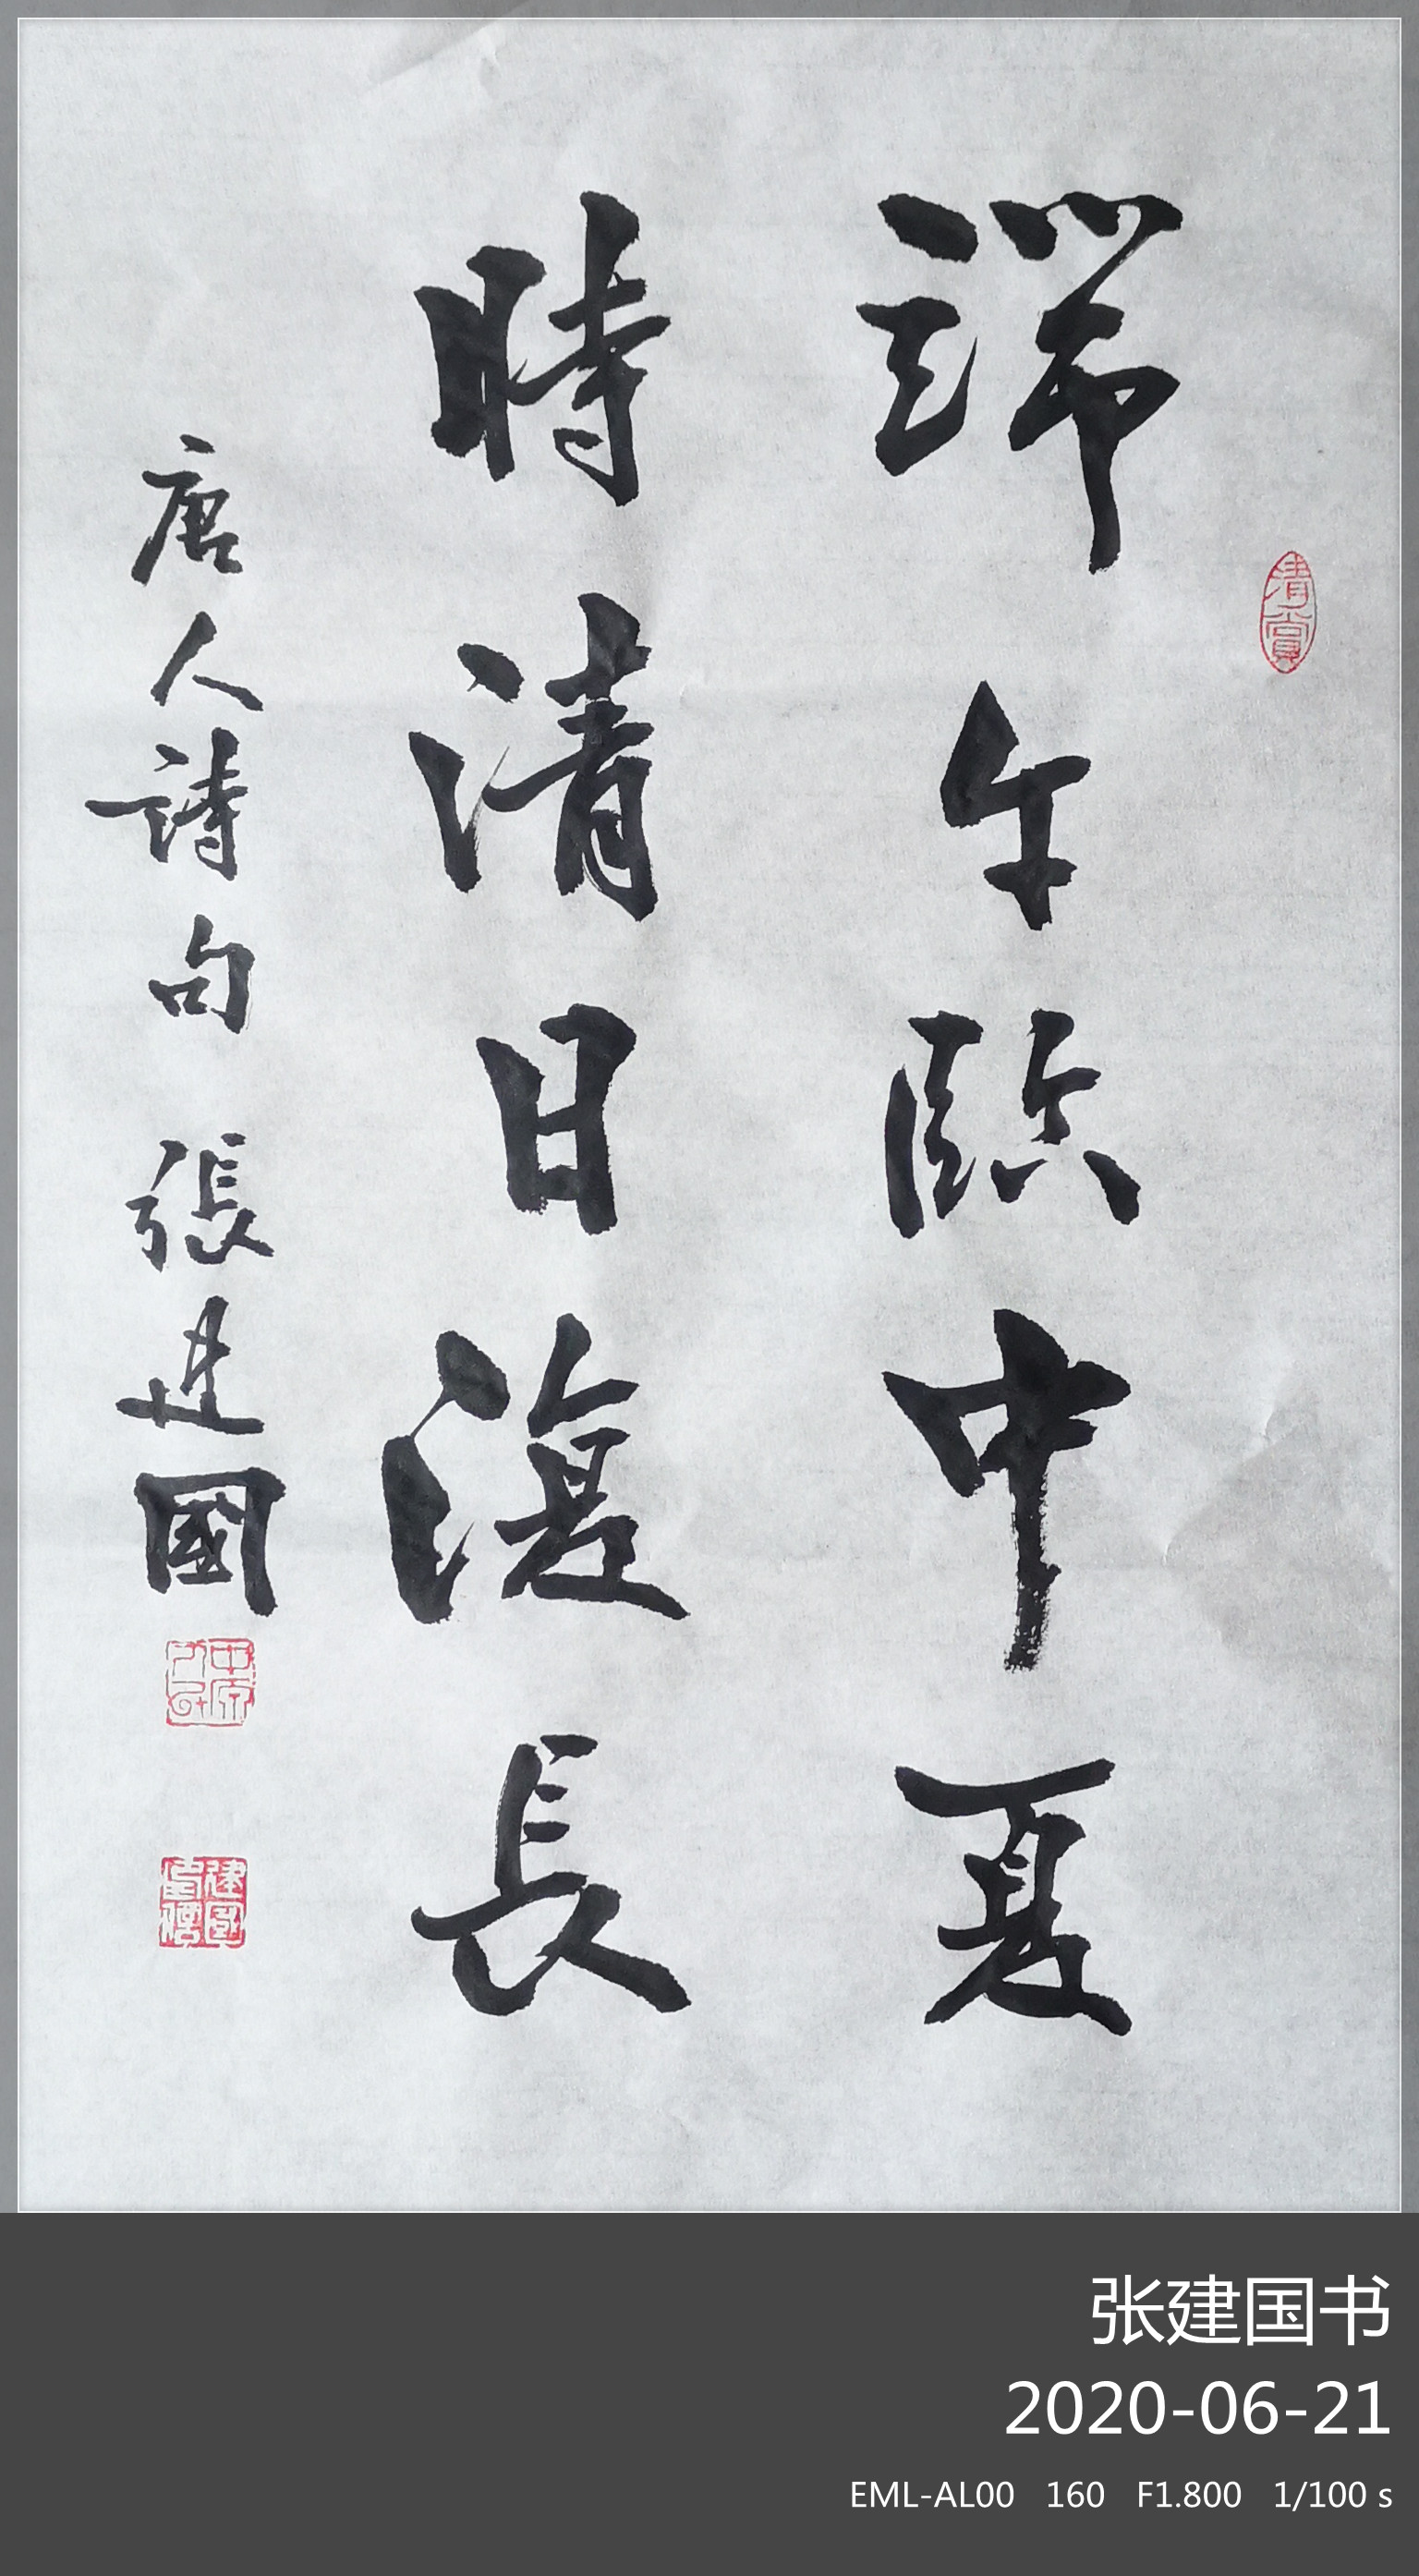 清賞
端午臨中夏
時清日復長
唐人詩句 張建國
张建国书
2020-06-21
EML-AL00 160 F1.800 1/100 s